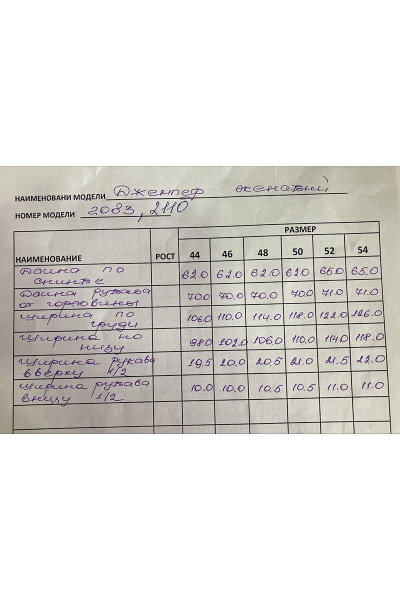 НАИМЕНОВАНИ МОДЕЛИ Джемпер женский
НОМЕР МОДЕЛИ 2083, 2110
РАЗМЕР
НАИМЕНОВАНИЕ РОСТ 44 46 48 50 52 54
Длина по спинке 62.0 62.0 62.0 62.0 65.0 65.0
Длина рукава от горловины 70.0 70.0 70.0 70.0 71.0 71.0
Ширина по груди 106.0 110.0 114.0 118.0 122.0 126.0
Ширина по низу 98.0 102.0 106.0 110.0 114.0 118.0
Ширина рукава вверху 1/2 19,5 20.0 20,5 21.0 21.5 22.0
Ширина рукава внизу 1/2 10.0 10.0 10.5 10.5 11.0 11.0